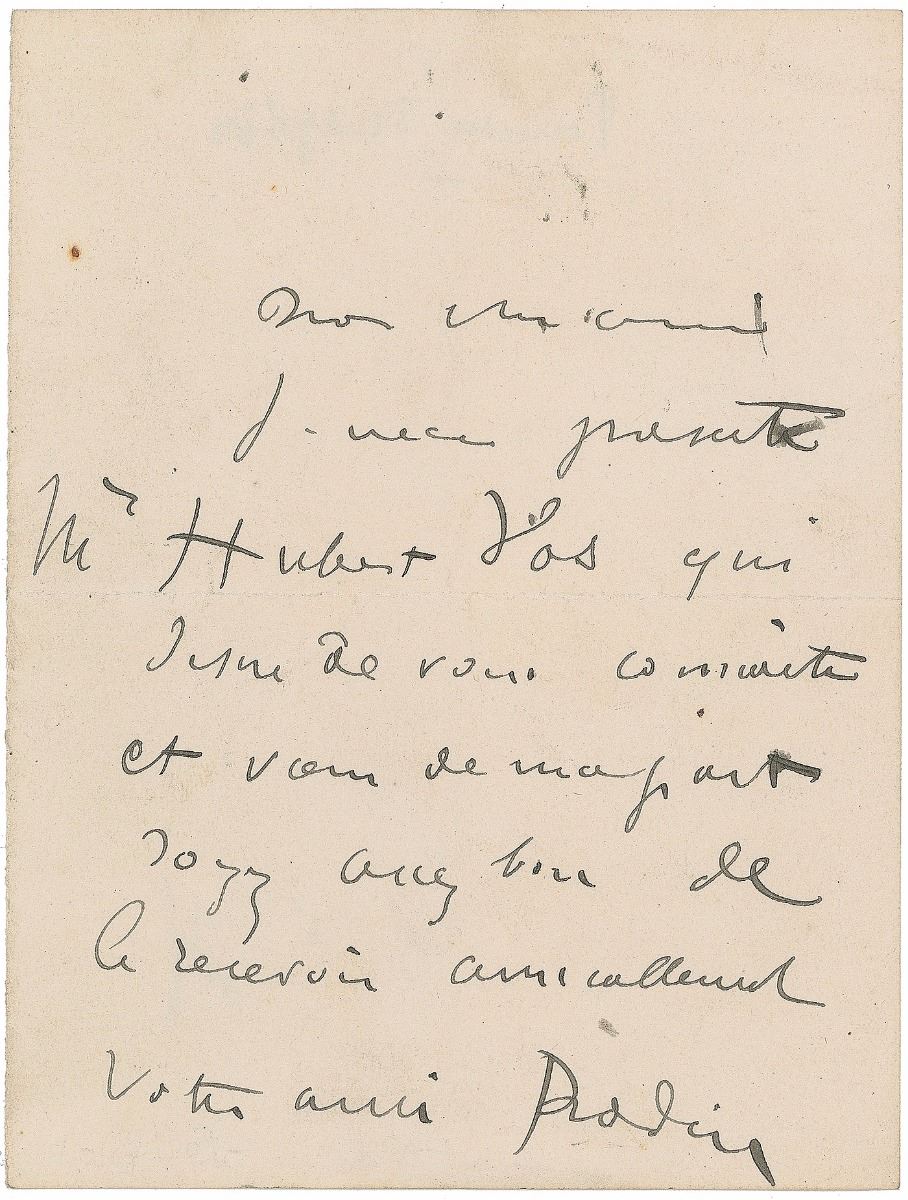 Mon cher ami
Je vous présente
Mr Hubert Vos qui
desire de vous connaitre
et vous de ma part
soyez assez bon de
le recevoir amicallement
Votre ami Rodin